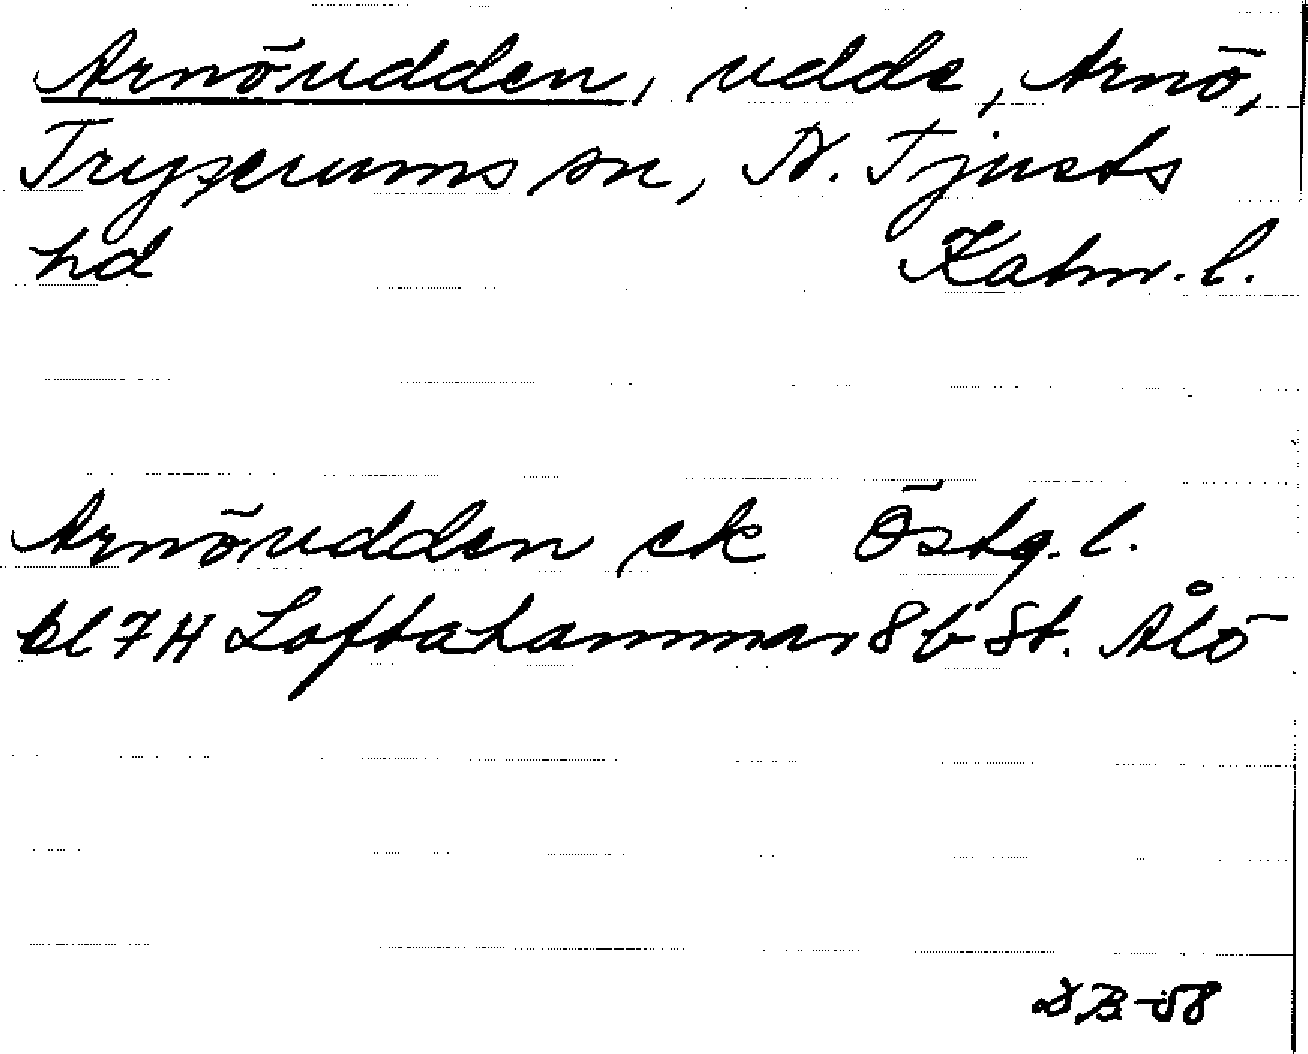 Arnöudden, udde, Arnö,
Tryserums sn, N. Tjusts
hd Kalm. l.
Arnöudden ek Östg. l.
bl 7H Loftahammar 8b St. Ålö
DB-58